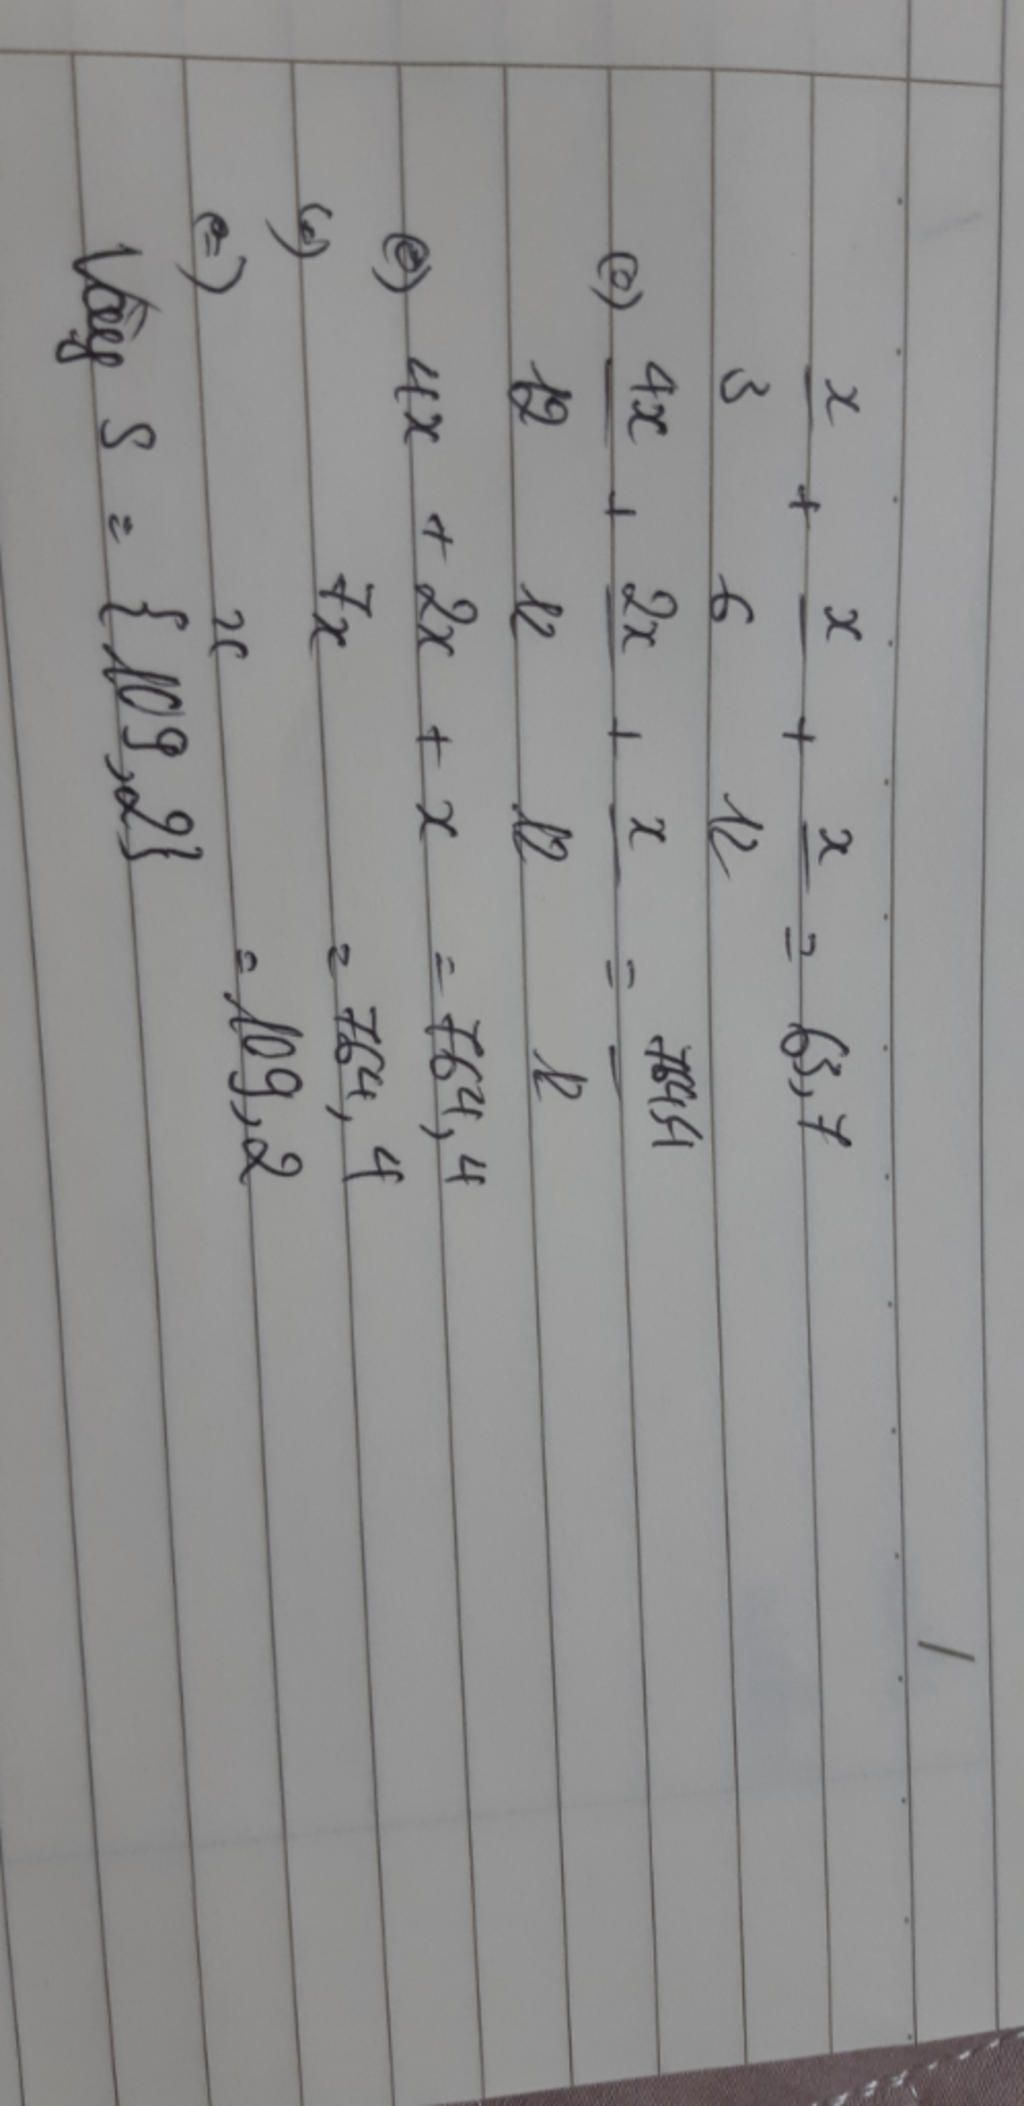 x/3 + x/6 + x/12 = 63,7
(=) 4x/12 + 2x/12 + x/12 = 764,4/12
(=) 4x + 2x + x = 764,4
(=) 7x = 764,4
(=) x = 109,2
Vậy S = {109,2}